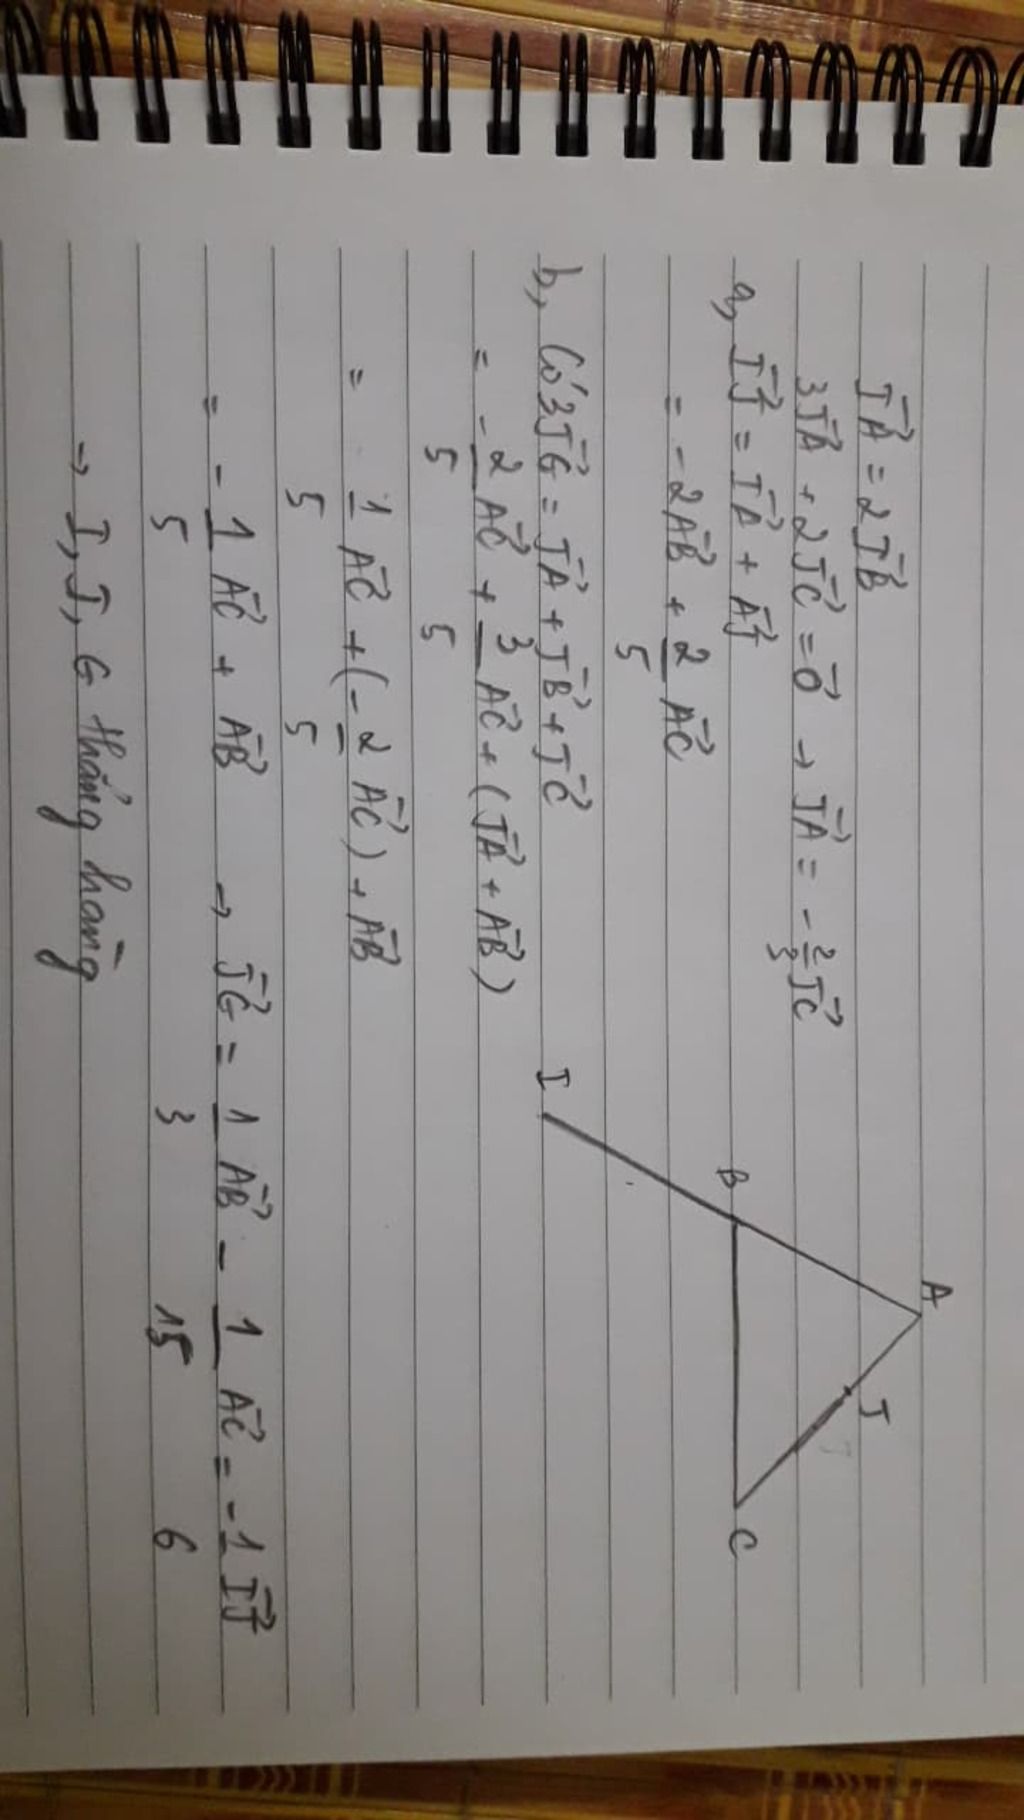 IA⃗ = 2IB⃗
3JA⃗ + 2JC⃗ = 0⃗ → JA⃗ = -2/3 JC⃗
a, IJ⃗ = IA⃗ + AJ⃗
= -2AB⃗ + 2/5 AC⃗
b, Có 3JG⃗ = JA⃗ + JB⃗ + JC⃗
= -2/5 AC⃗ + 3/5 AC⃗ + (JA⃗ + AB⃗)
= 1/5 AC⃗ + (-2/5 AC⃗) + AB⃗
= -1/5 AC⃗ + AB⃗ → JG⃗ = 1/3 AB⃗ - 1/15 AC⃗ = -1/6 IJ⃗
→ I, J, G thẳng hàng
A
J
B
C
I